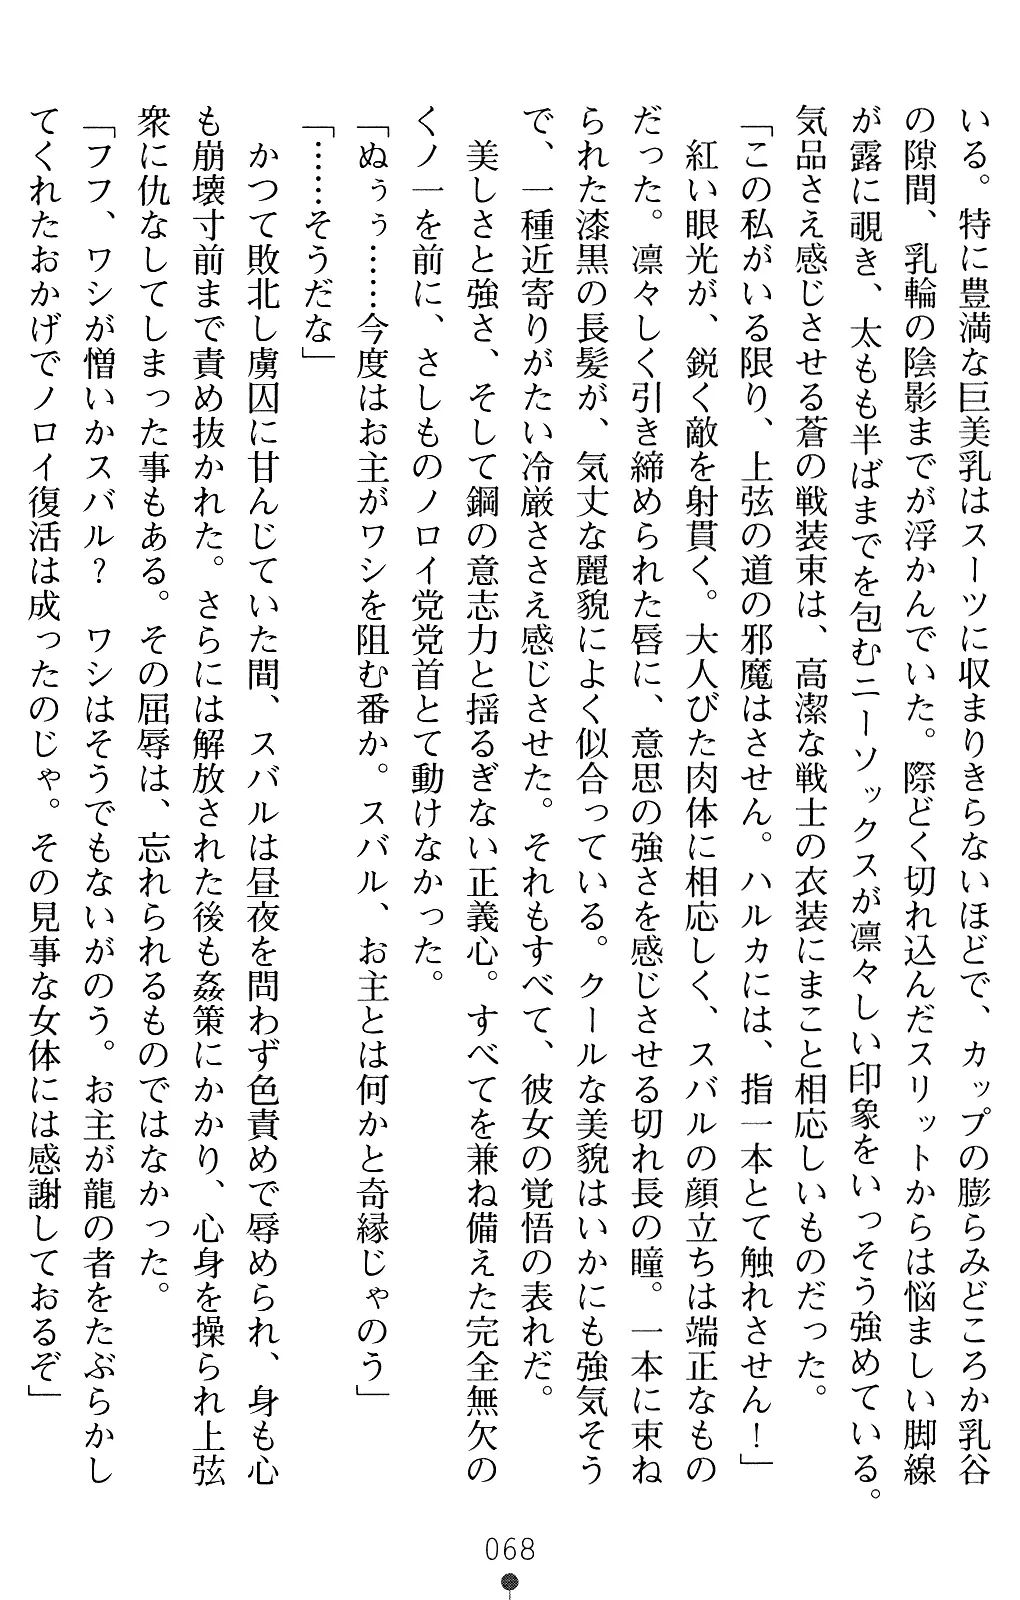 いる。特に豊満な巨美乳はスーツに収まりきらないほどで、カップの膨らみどころか乳谷
の隙間、乳輪の陰影までが浮かんでいた。際どく切れ込んだスリットからは悩ましい脚線
が露に覗き、太もも半ばまでを包むニーソックスが凛々しい印象をいっそう強めている。
気品さえ感じさせる蒼の戦装束は、高潔な戦士の衣装にまこと相応しいものだった。
「この私がいる限り、上弦の道の邪魔はさせん。ハルカには、指一本とて触れさせん！」
紅い眼光が、鋭く敵を射貫く。大人びた肉体に相応しく、スバルの顔立ちは端正なもの
だった。凛々しく引き締められた唇に、意思の強さを感じさせる切れ長の瞳。一本に束ね
られた漆黒の長髪が、気丈な麗貌によく似合っている。クールな美貌はいかにも強気そう
で、一種近寄りがたい冷厳ささえ感じさせた。それもすべて、彼女の覚悟の表れだ。
美しさと強さ、そして鋼の意志力と揺るぎない正義心。すべてを兼ね備えた完全無欠の
くノ一を前に、さしものノロイ党党首とて動けなかった。
「ぬぅぅ……今度はお主がワシを阻む番か。スバル、お主とは何かと奇縁じゃのう」
「……そうだな」
かつて敗北し虜囚に甘んじていた間、スバルは昼夜を問わず色責めで辱められ、身も心
も崩壊寸前まで責め抜かれた。さらには解放された後も姦策にかかり、心身を操られ上弦
衆に仇なしてしまった事もある。その屈辱は、忘れられるものではなかった。
「フフ、ワシが憎いかスバル？　ワシはそうでもないがのう。お主が龍の者をたぶらかし
てくれたおかげでノロイ復活は成ったのじゃ。その見事な女体には感謝しておるぞ」
068